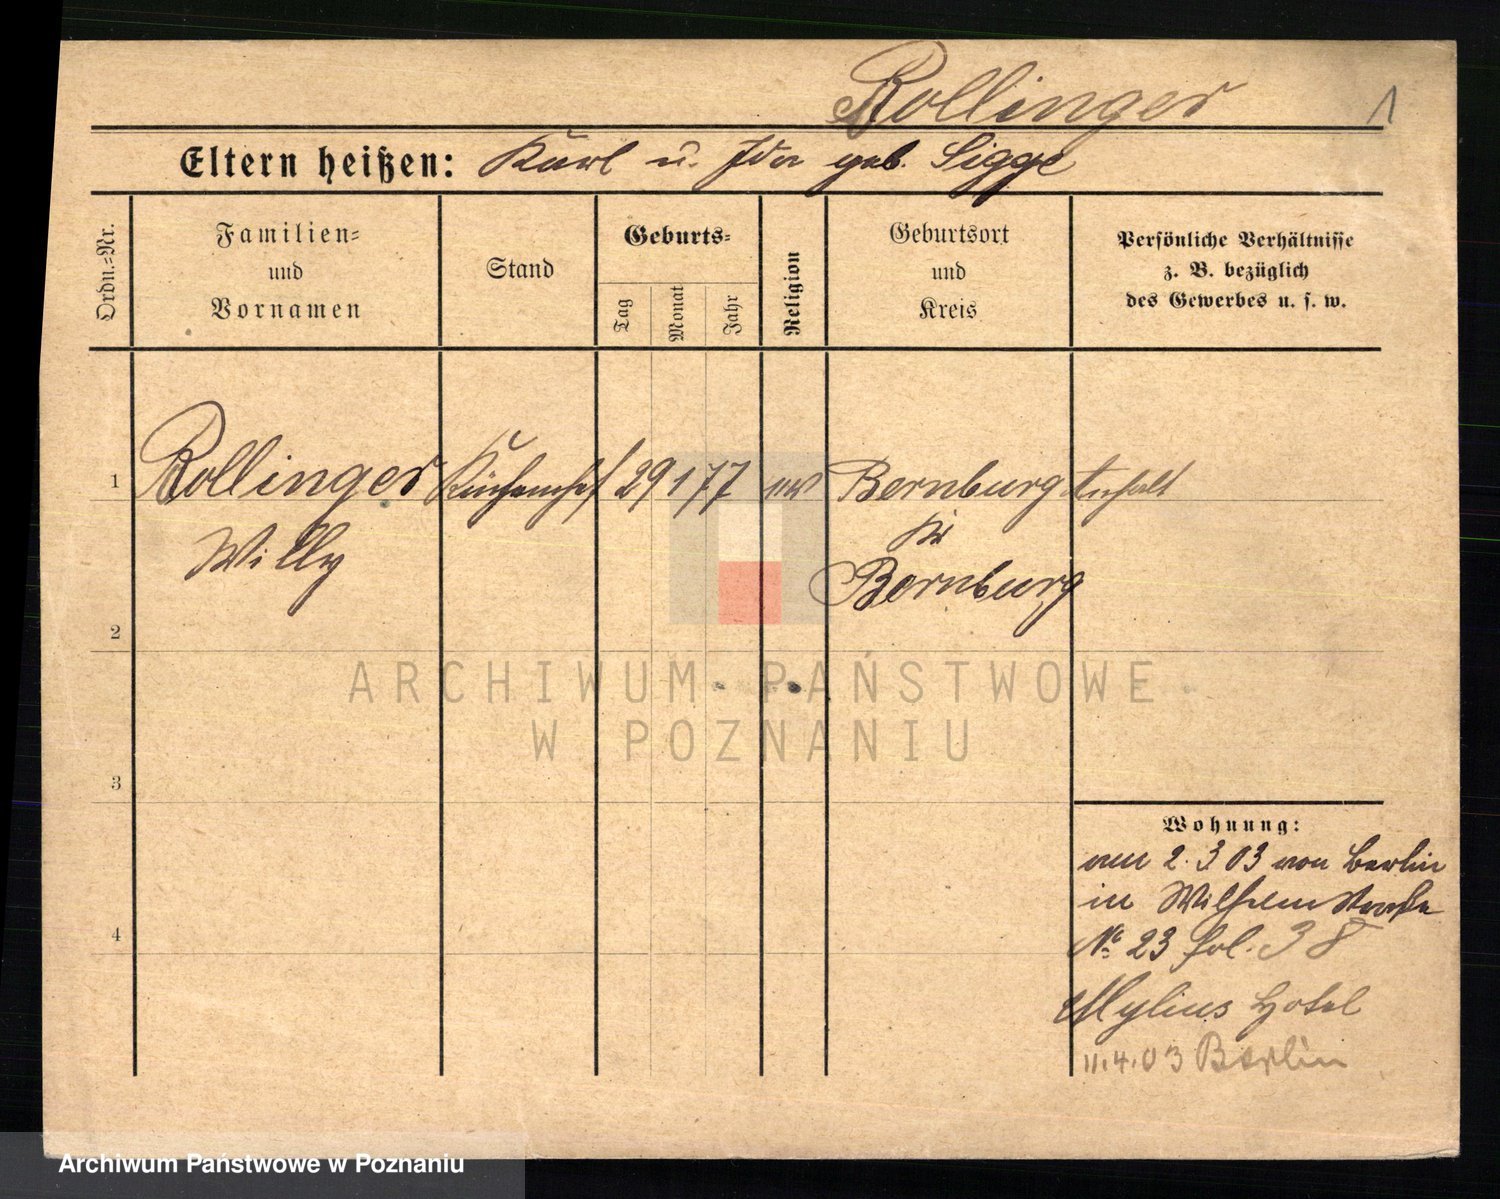 Rollinger
1
Eltern heißen: Karl u. Ida geb. Sigge
Ordn.=Nr.
Familien=
und
Vornamen
Stand
Geburts=
Tag
Monat
Jahr
Religion
Geburtsort
und
Kreis
Persönliche Verhältnisse
z. B. bezüglich
des Gewerbes u. s. w.
1 Rollinger Küchenchef 29 1 77 ev Bernburg Anhalt
Kr
Willy Bernburg
2
ARCHIWUM PAŃSTWOWE
W POZNANIU
3
Wohnung:
am 2. 3 03 von Berlin
in Wilhelmstraße
4
No 23 pol. 38
Mylius Hotel
11.4.03 Berlin
Archiwum Państwowe w Poznaniu